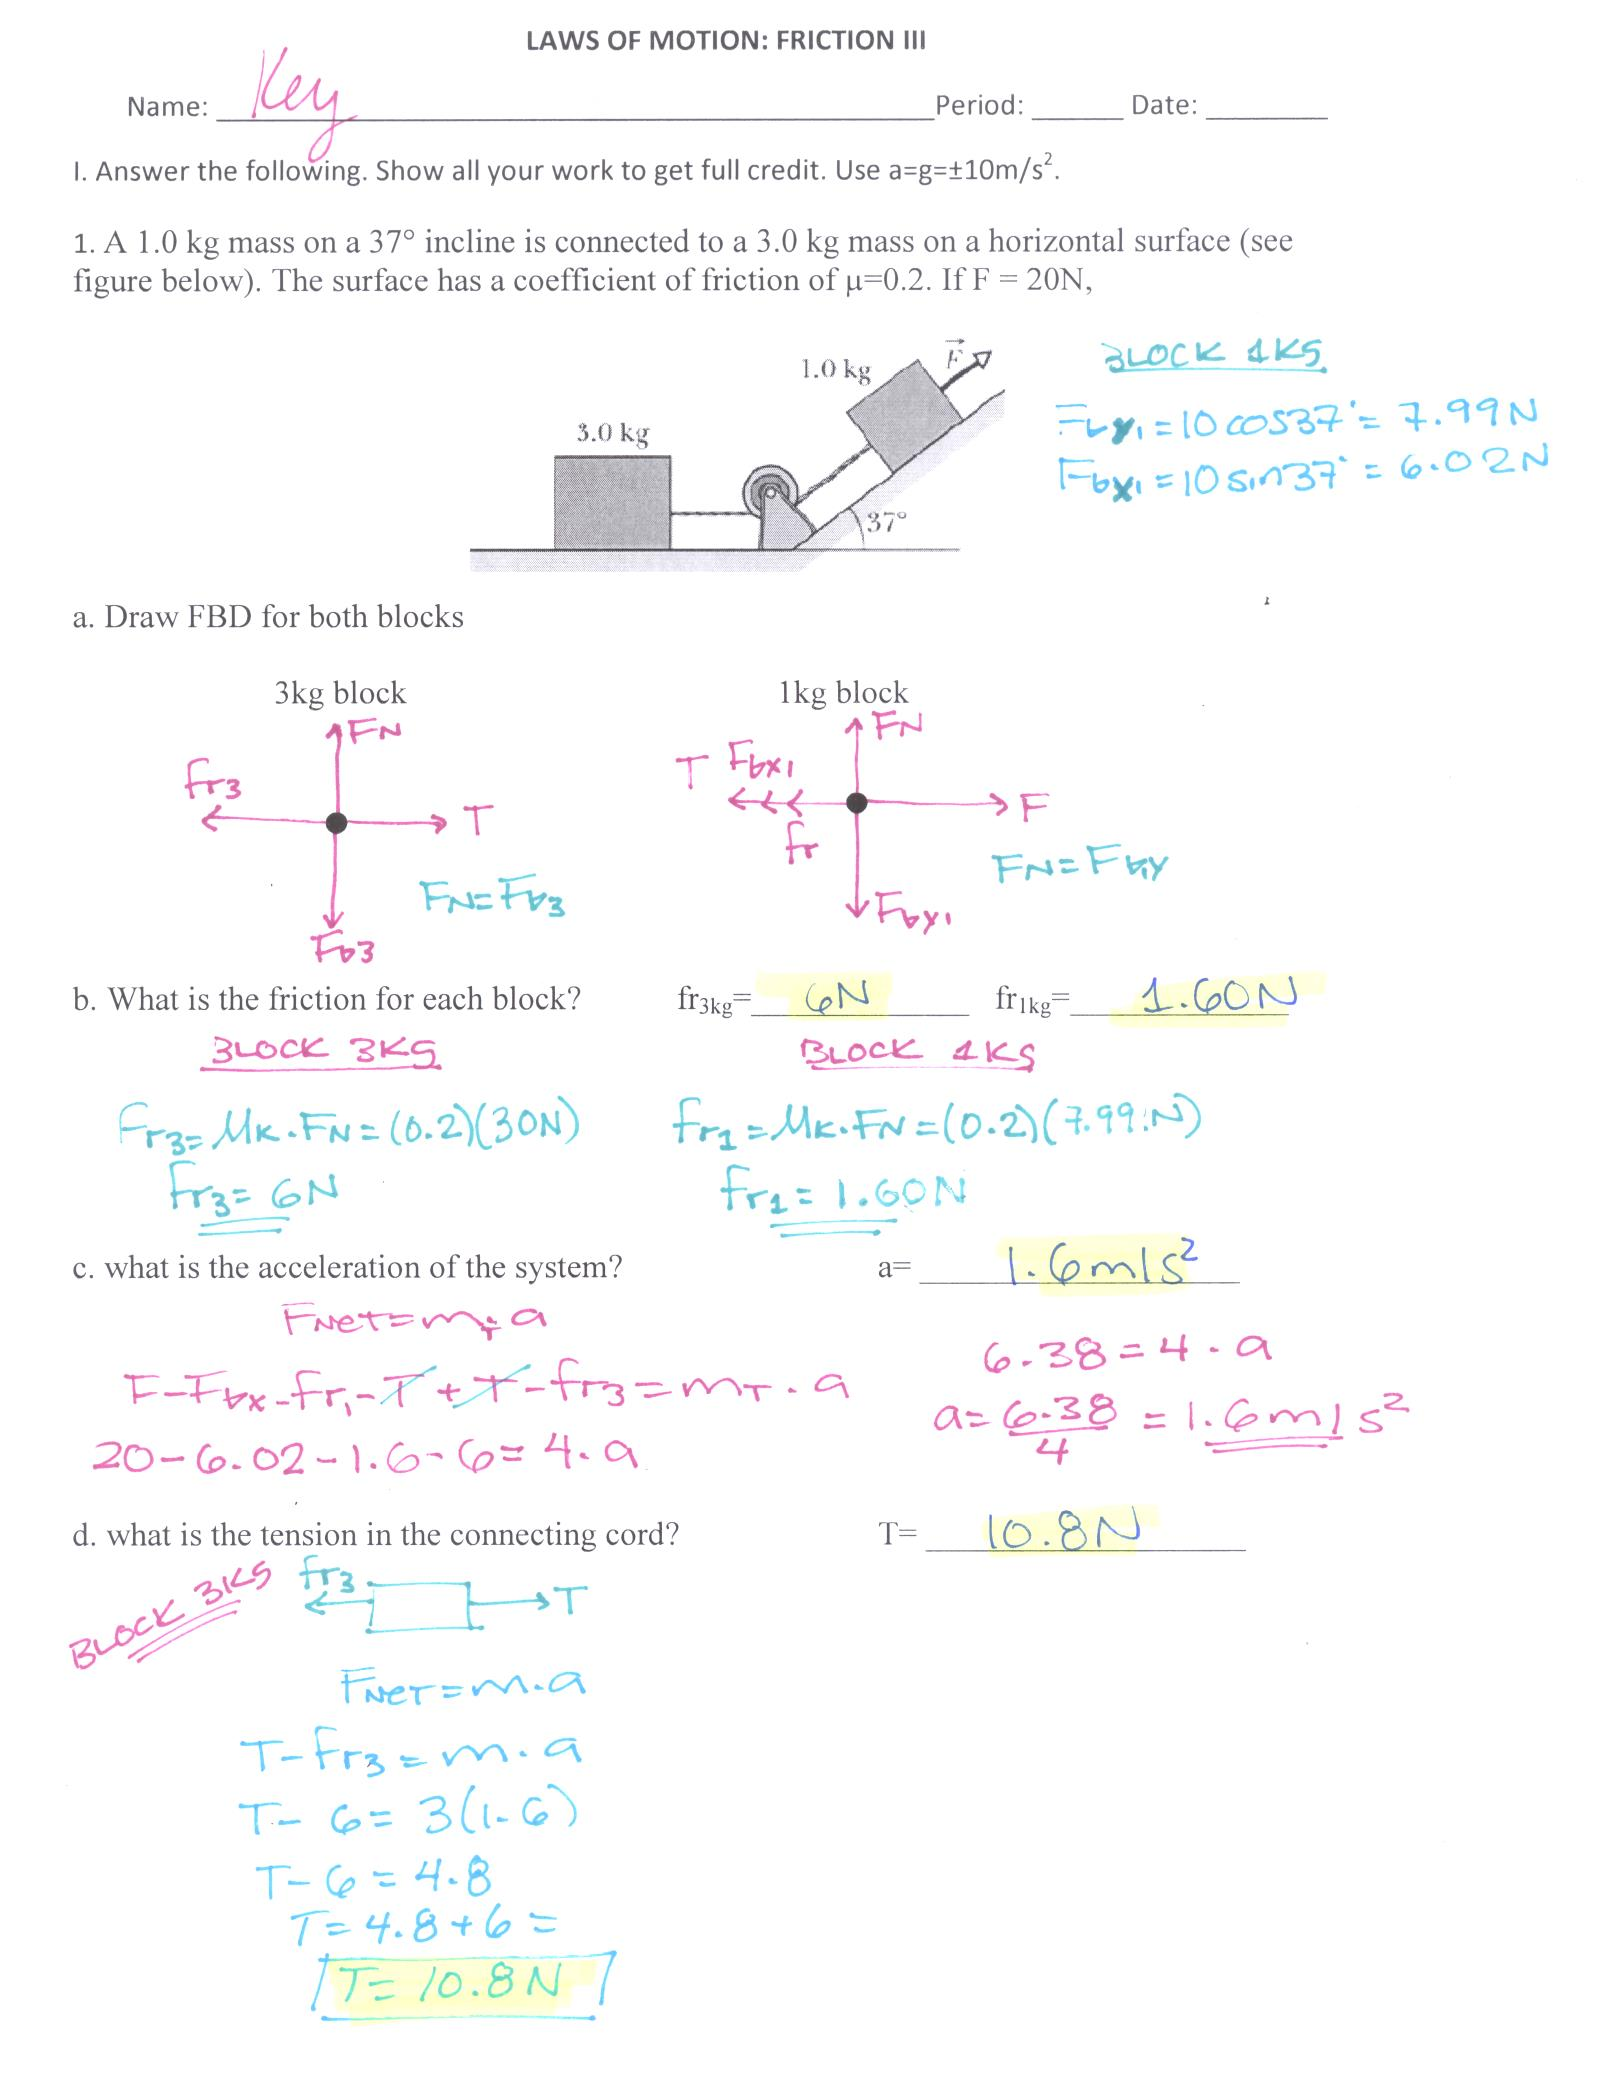 LAWS OF MOTION: FRICTION III
Name: Key Period: Date:
I. Answer the following. Show all your work to get full credit. Use a=g=±10m/s².
1. A 1.0 kg mass on a 37° incline is connected to a 3.0 kg mass on a horizontal surface (see
figure below). The surface has a coefficient of friction of μ=0.2. If F = 20N,
BLOCK 1KG
1.0 kg
F
3.0 kg
37°
Fgy1 = 10 cos37° = 7.99N
Fgx1 = 10 sin37° = 6.02N
a. Draw FBD for both blocks
3kg block
1kg block
FN
fr3
T
Fg3
FN=Fg3
FN
T Fgx1
fr
F
Fgy1
FN=Fgy
b. What is the friction for each block? fr3kg= 6N fr1kg= 1.60N
BLOCK 3KG
BLOCK 1KG
Fr3= μK.FN = (0.2)(30N)
fr1 = μK.FN = (0.2)(7.99N)
fr3= 6N
fr1 = 1.60N
c. what is the acceleration of the system? a= 1.6m/s²
FNET=mT.a
F-Fgx-Fr1-T+T-fr3=mT.a
20-6.02-1.6-6=4.a
6.38=4.a
a=6.38/4 = 1.6m/s²
d. what is the tension in the connecting cord? T= 10.8N
BLOCK 3KG
fr3
T
FNET=m.a
T-fr3=m.a
T-6=3(1.6)
T-6=4.8
T=4.8+6=
T=10.8N